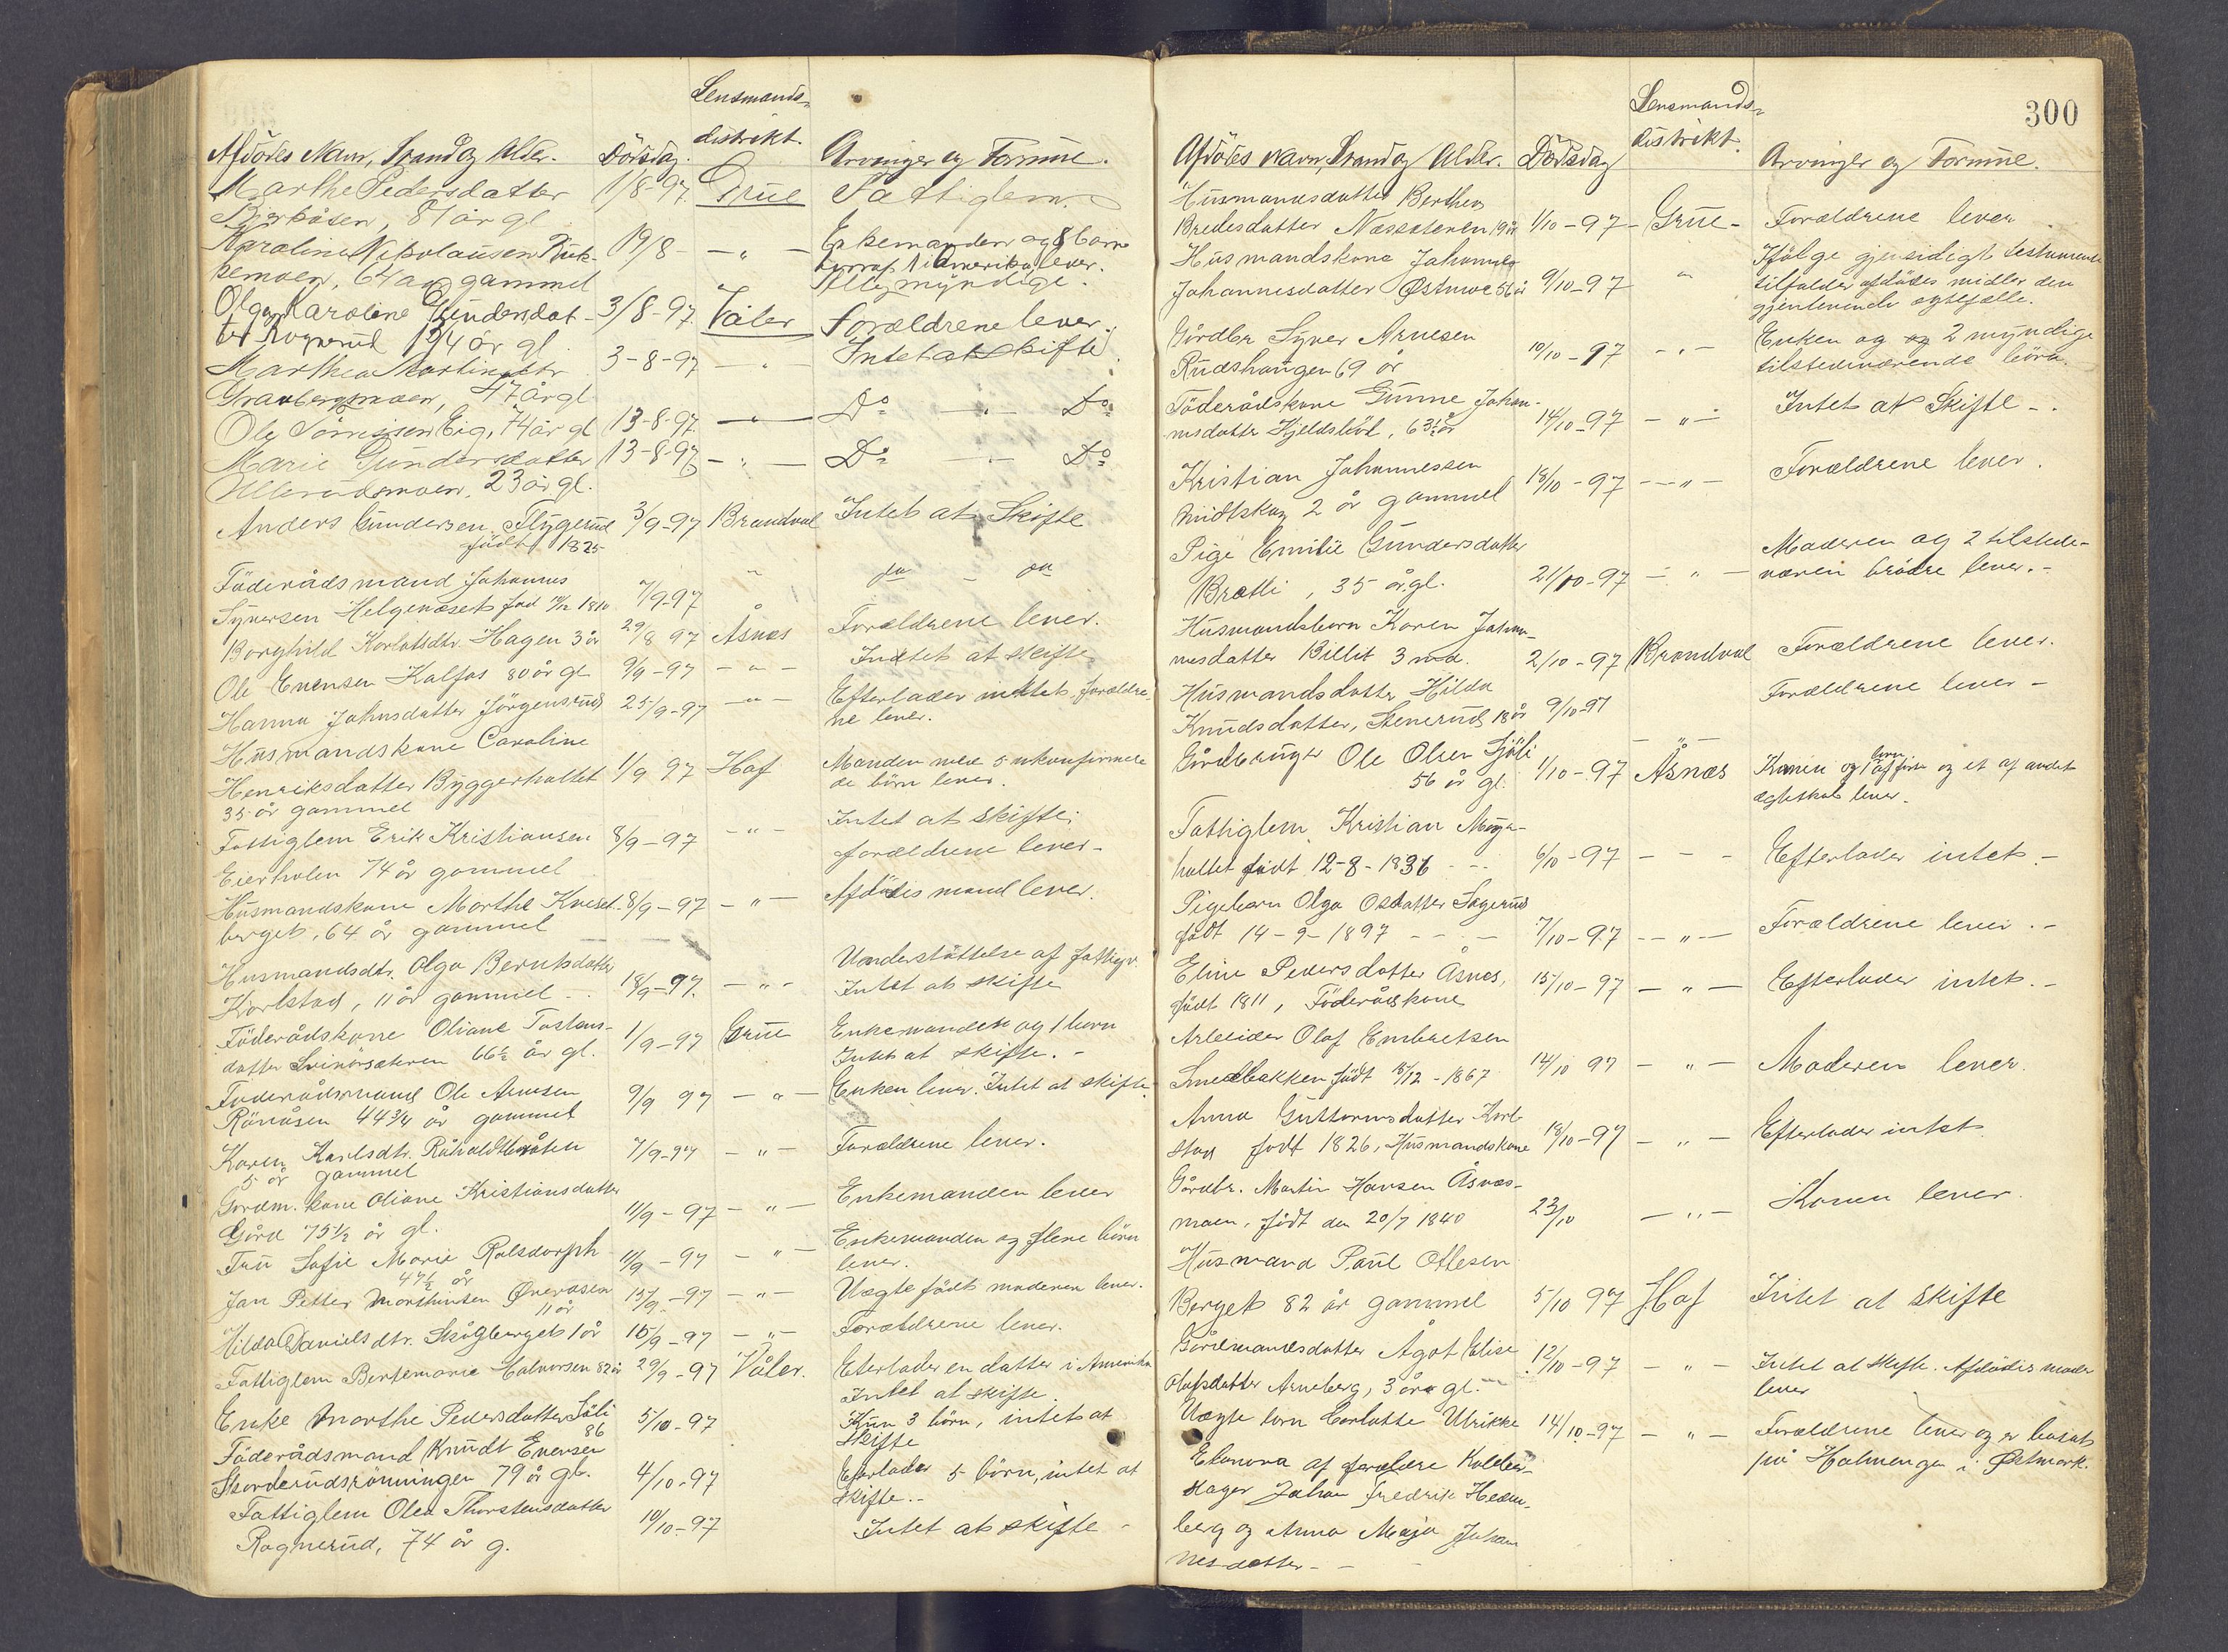 Lensmands-
distrikt.
Afdødes Navn, Stand og Alder. Dödsdag. Arvinger og Formue.
Marthe Pedersdatter 1/8-97 Grue Fattiglem
Bjerkåsen, 81 år gl
Karoline Nikolausen Ruk- 19/8 - „ - Enkemanden og 8 børn
kemoen, 64 år gammel hvoraf 1 i Amerika lever.
Alle myndige.
Olga Karoline Gundersdat- 3/8-97 Våler Forældrene lever.
ter Rognerud 1 3/4 år gl
Marthea Martinsdtr 3-8-97 - „ - Intet at skifte
Gravbergsmoen, 47 år gl
Ole Sörensen Eig, 74 år gl 13-8-97 - „ - Do - „ - Do
Marie Gundersdatter 13-8-97 - „ - Do - „ - Do
Ullerudsmoen, 23 år gl.
Anders Gundersen Flygerud 3/9-97 Brandval Intet at Skifte
födt 1825
Föderådsmand Johannes
Syversen Helgenæset 7/9-97 „
Borghild Karlotsdtr. Hagen 3 år 29/8 97 Åsnæs Forældrene lever.
Ole Evensen Kalfos 80 år gl 9/9-97 - „ - Intet at skifte
Hanna Johnsdatter Jörgensrud 25/9-97 - „ - Efterlader intet, forældre
ne lever.
Husmandskone Caroline
Henriksdatter Byggerholtet 1/9 97 Hof Manden med 5 ukonfirmere
35 år gammel de börn lever.
Fattiglem Erik Kristiansen 8/9-97 - „ - Intet at skifte;
Eierholen 74 år gammel forældrene lever-
Husmandskone Marthe Kveset- 8/9-97 - „ - Afdödes mand lever.
berget, 64 år gammel
Husmandsdtr. Olga Berntsdatter Understöttelse af fattigv.
Karlstad, 11 år gammel - 18/9-97. - „ - Intet at skifte
Föderådskone Oliane Tostens- 1/9-97 Grue Enkemanden og 1 barn
datter Svinörsæteren 66½ år gl. Intet at skifte. -
Föderådsmand Ole Arnesen 9/9 97 - „ - Enken lever. Intet at skifte.
Rönåsen 44 3/4 år gammel
Karen Karlsdtr. Råholdtbråten 7/9-97 - „ - Forældrene lever.
5 år gammel
Gardm. kone Oliane Kristiansdatter 11/9-97 - „ - Enkemanden lever
Gård 75 1/2 år gl.
Fru Sofie Marie Rolsdorph 11/9-97 - „ - Enkemanden og flere börn
47½ år lever.
Jan Petter Marthinsen Överåsen 15/9-97 - „ - Uægte födt moderen lever.
11 år
Hilda Daniels dtr. Skögberget 1 år 15/9-97 - „ - Forældrene lever.
Fattiglem Bertemarie Halvorsen 82 år 29/9-97 Våler. Eterlader en datter i Amerika
Intet at skifte.
Enke Marthe Pedersdatter Säli 5/10-97 Kun 3 börn, intet at
86 skifte
Föderådsmand Knudt Evensen
Skorderudsrönningen 79 år gl. 4/10-97 Eterlader 5 börn, intet at
skifte.-
Fattiglem Olea Thorstensdatter 10/10-97 Intet at skifte -
Rognerud, 74 år g.
300
Lensmands-
distrikt.
Afdödes Navn, Stand og Alder. Dödsdag Arvinger og Formue.
Husmandsdatter Berthea
Bredesdatter Næssæteren 19 år 1/10-97 - Grue - Forældrene lever
Husmandskone Johannes Ifölge gjensidigt testamente
Johannesdatter Östmoe 56 år 9/10-97 „ tilfalder afdödes midler den
gjenlevende ægtefælle.
Gårdbr Syver Arnesen 10/10-97 - „ - Enken og 2 myndige
Rudshaugen 69 år tilstedeværende börn.
Föderådskone Gunne Johan- 14/10-97 - „ - Intet at Skifte -.
nesdatter 63½ år
Kristian Johannessen 18/10-97 - „ - Forældrene lever.
Midtskog 2 år gammel
Pige Emilie Gundersdatter Moderen og 2 tilstede-
Bratli, 35 år gl. 21/10-97 - „ - væren brödre lever.-
Husmandsbarn Karen Johan-
nesdatter Billit 3 md. 2/10-97 Brandval Forældrene lever.
Husmandsdatter Hilda
Knudsdatter, Stenerud 18 år 9/10-97 - „ - Forældrene lever -
Gårdbruger Ole Olsen Sjöli 1/10-97 Åsnæs Konen og 1 barn af förste og et af andet
56 år gl. ægteskab lever.
Fattiglem Kristian Myr-
holtet födt 12-8-1836 - 6/10-97 - - - Efterlader intet.-
Pigebarn Olga Osdatter Sagerud
födt 14-9-1897 - - 7/10-97 - „ - Forældrene lever .-
Eline Pedersdatter Åsnæs, 15/10-97 - „ - Efterlader intet.-
födt 1811, Föderådskone
Arbeider Olaf Embretsen
Smedbakken födt 18/12-1867 14/10 97 - „ - Moderen lever.
Anna Guttormsdatter Karl-
stad födt 1826, Husmandskone 18/10-97 - „ - Efterlader intet
Gårdbr. Martin Hansen Åsnæs-
moen, födt den 20/7 1840 23/10 - „ - Konen lever.
Husmand Paul Ottesen
Berget 82 år gammel 5/10 97 Hof Intet at skifte
Gårdmandsdatter Ågot Elise 12/10-97 - „ - Intet at skifte. Afdödes moder
Olafsdatter Arneberg, 3 år gl. lever
Uægte barn Carlotte Ulrikke 14/10-97 - „ - Forældrene lever og er bosat
Elonora af forældre Kulbær- på Holmengen i Østmark.
stager Johan Fredrik Hedn-
berg og Anna Maja Johan
nesdatter - -